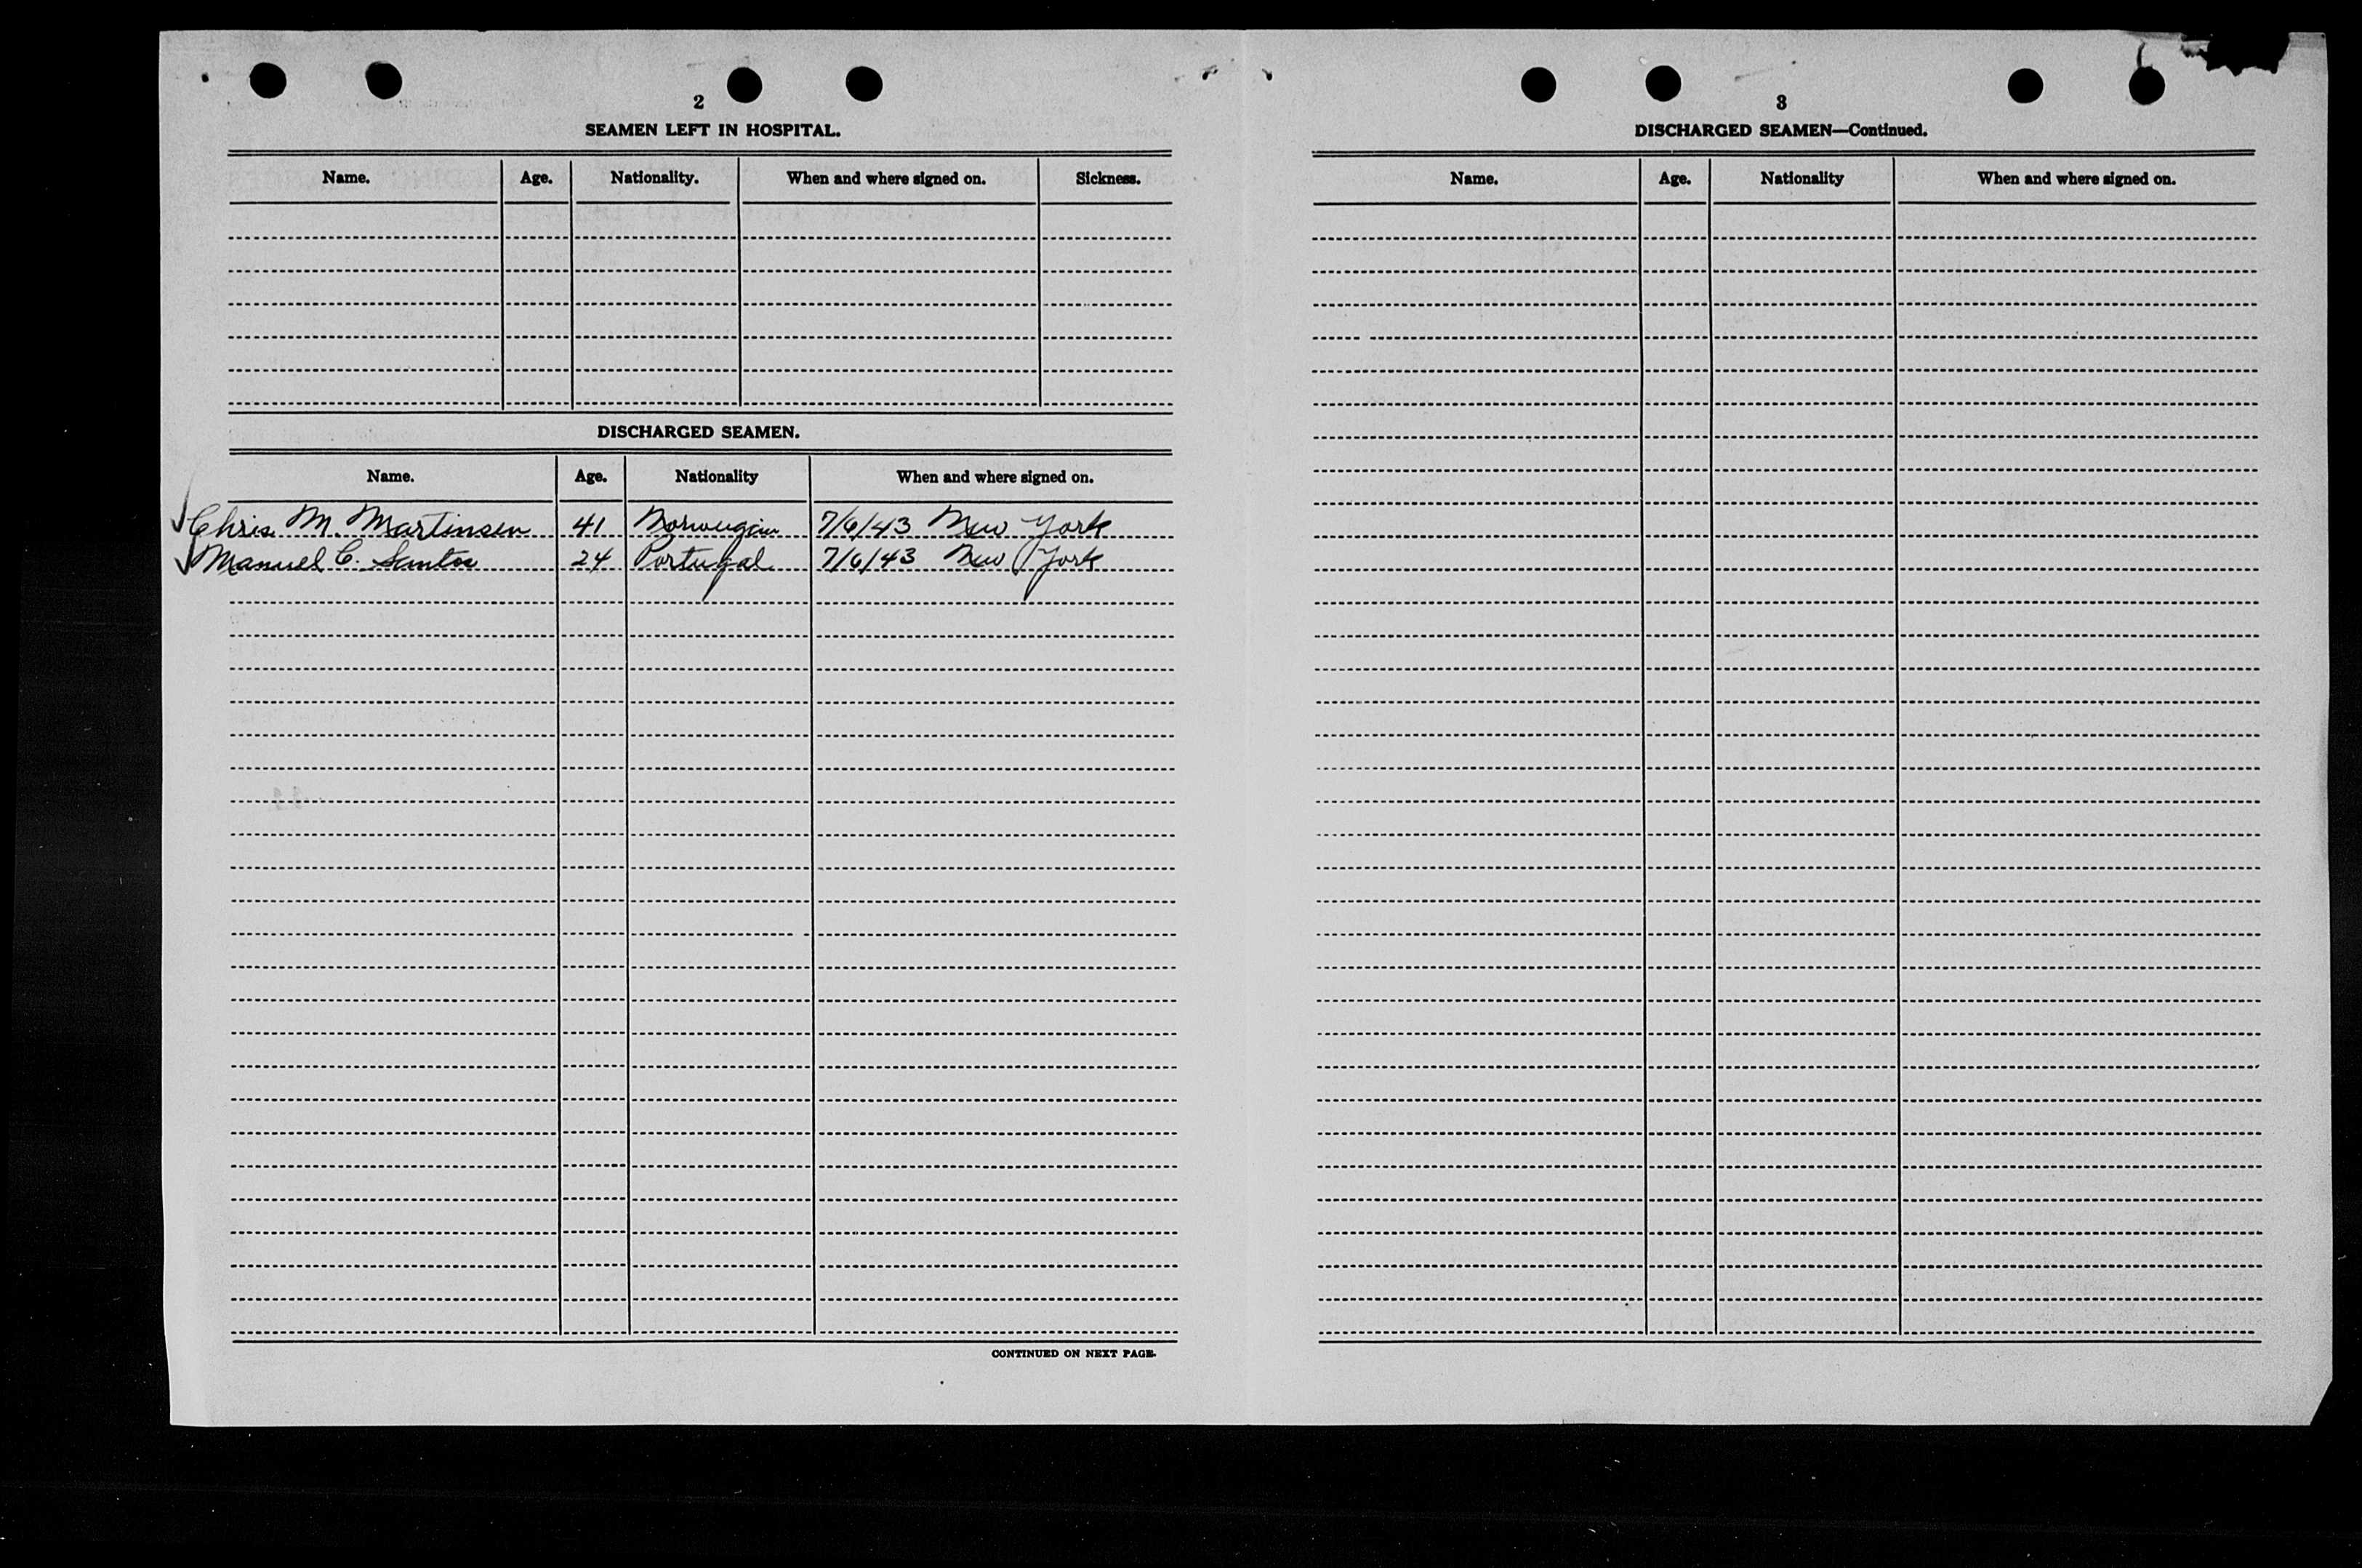 2
SEAMEN LEFT IN HOSPITAL.
Name. Age. Nationality. When and where signed on. Sickness.
DISCHARGED SEAMEN.
Name. Age. Nationality When and where signed on.
Chris M. Martinsen 41 Norwegian 7/6/43 New York
Manuel C. Santos 24 Portugal 7/6/43 New York
CONTINUED ON NEXT PAGE.
3
DISCHARGED SEAMEN—Continued.
Name. Age. Nationality When and where signed on.